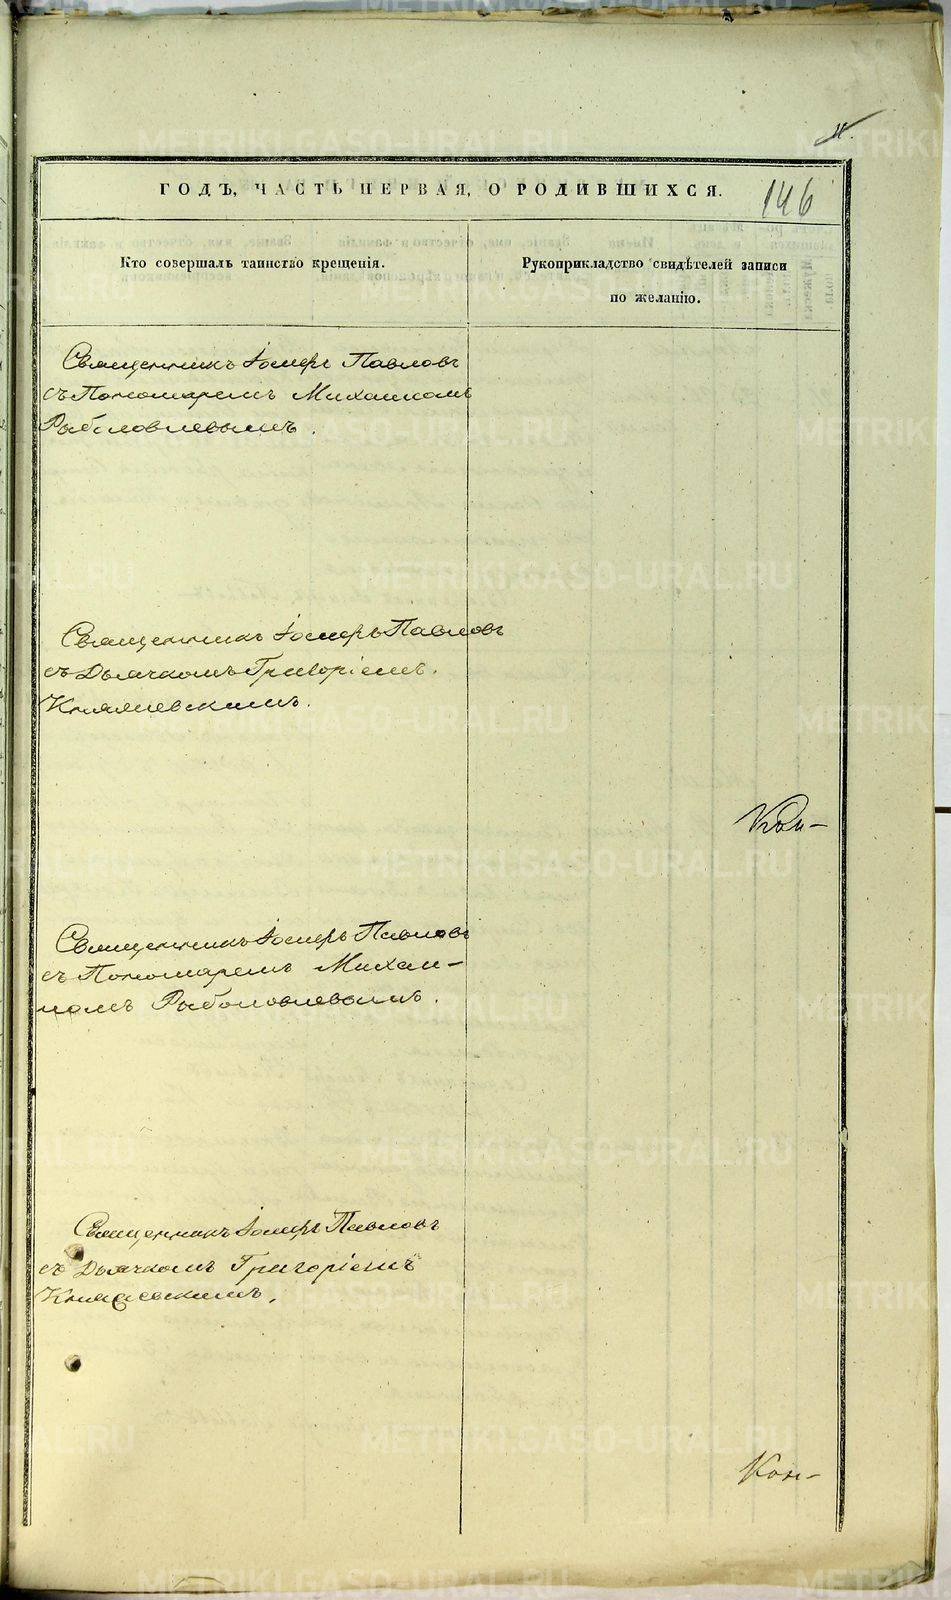 11.
ГОДЪ, ЧАСТЬ ПЕРВАЯ, О РОДИВШИХСЯ.
146
Кто совершалъ таинство крещенія.
Рукоприкладство свидѣтелей записи
по желанію.
Священникъ Іосифъ Павловъ
съ Пономаремъ Михаиломъ
Рыболовлевымъ.
Священникъ Іосифъ Павловъ
съ Дьячкомъ Григоріемъ
Священникъ Іосифъ Павловъ
съ Пономаремъ Михаи-
ломъ Рыболовлевымъ.
Священникъ Іосифъ Павловъ
съ Дьячкомъ Григоріемъ
Кон-
METRIKI.GASO-URAL.RU